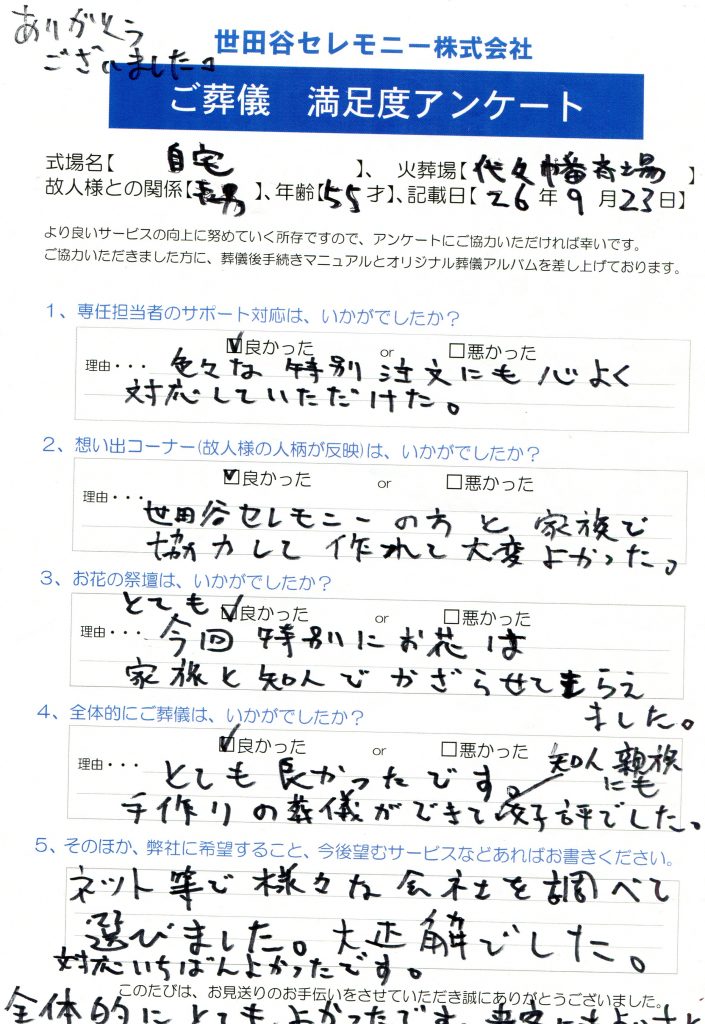 ありがとう
ございました。
世田谷セレモニー株式会社
ご葬儀 満足度アンケート
式場名【 自宅 】、 火葬場【 代々幡斎場 】
故人様との関係【 長男 】、年齢【 55 才】、記載日【 26 年 9 月 23 日】
より良いサービスの向上に努めていく所存ですので、アンケートにご協力いただければ幸いです。
ご協力いただきました方に、葬儀後手続きマニュアルとオリジナル葬儀アルバムを差し上げております。
1、専任担当者のサポート対応は、いかがでしたか？
☑良かった or □悪かった
理由・・・ 色々な 特別 注文にも 心よく
対応していただけた。
2、想い出コーナー(故人様の人柄が反映)は、いかがでしたか？
☑良かった or □悪かった
理由・・・
世田谷セレモニーの方と 家族で
協力して 作れて 大変よかった。
3、お花の祭壇は、いかがでしたか？
とても ☑良かった or □悪かった
理由・・・ 今回 特別に お花は
家族と知人で かざらせてもらえ
ました。
4、全体的にご葬儀は、いかがでしたか？
☑良かった or □悪かった
理由・・・ とても 良かったです。 知人 親族
にも
手作りの葬儀ができて 好評でした。
5、そのほか、弊社に希望すること、今後望むサービスなどあればお書きください。
ネット等で 様々な 会社を 調べて
選びました。大正解でした。
対応いちばんよかったです。
このたびは、お見送りのお手伝いをさせていただき誠にありがとうございました。
全体的に とても よかったです。